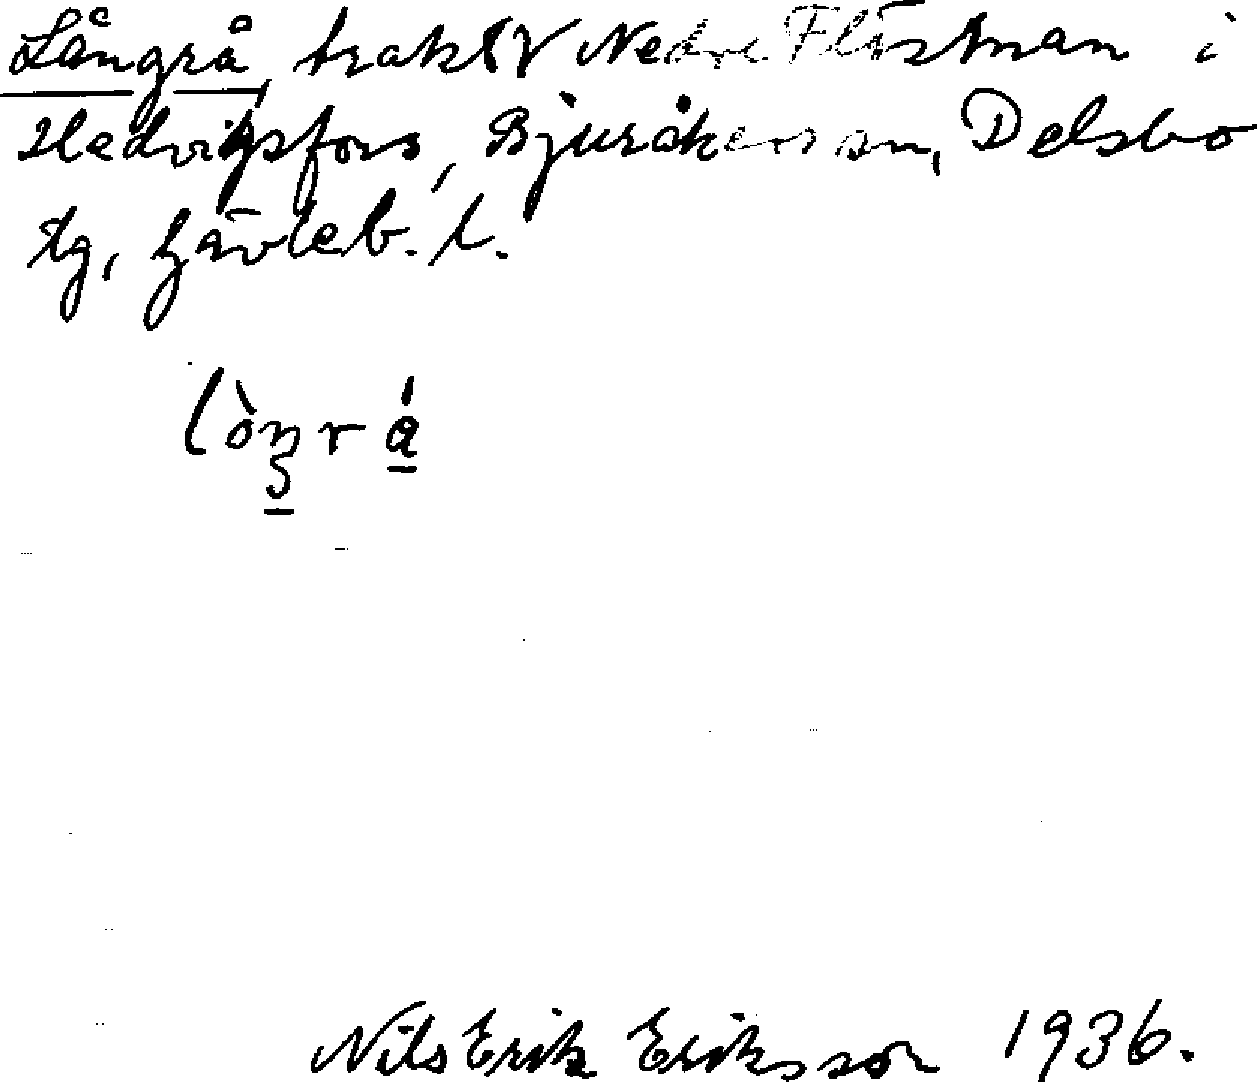 Långrå, trakt V Nedre Flästman i
Hedvigsfors, Bjuråkers sn, Delsbo
tg, Gävleb. l.
Nils Erik Eriksson 1936.